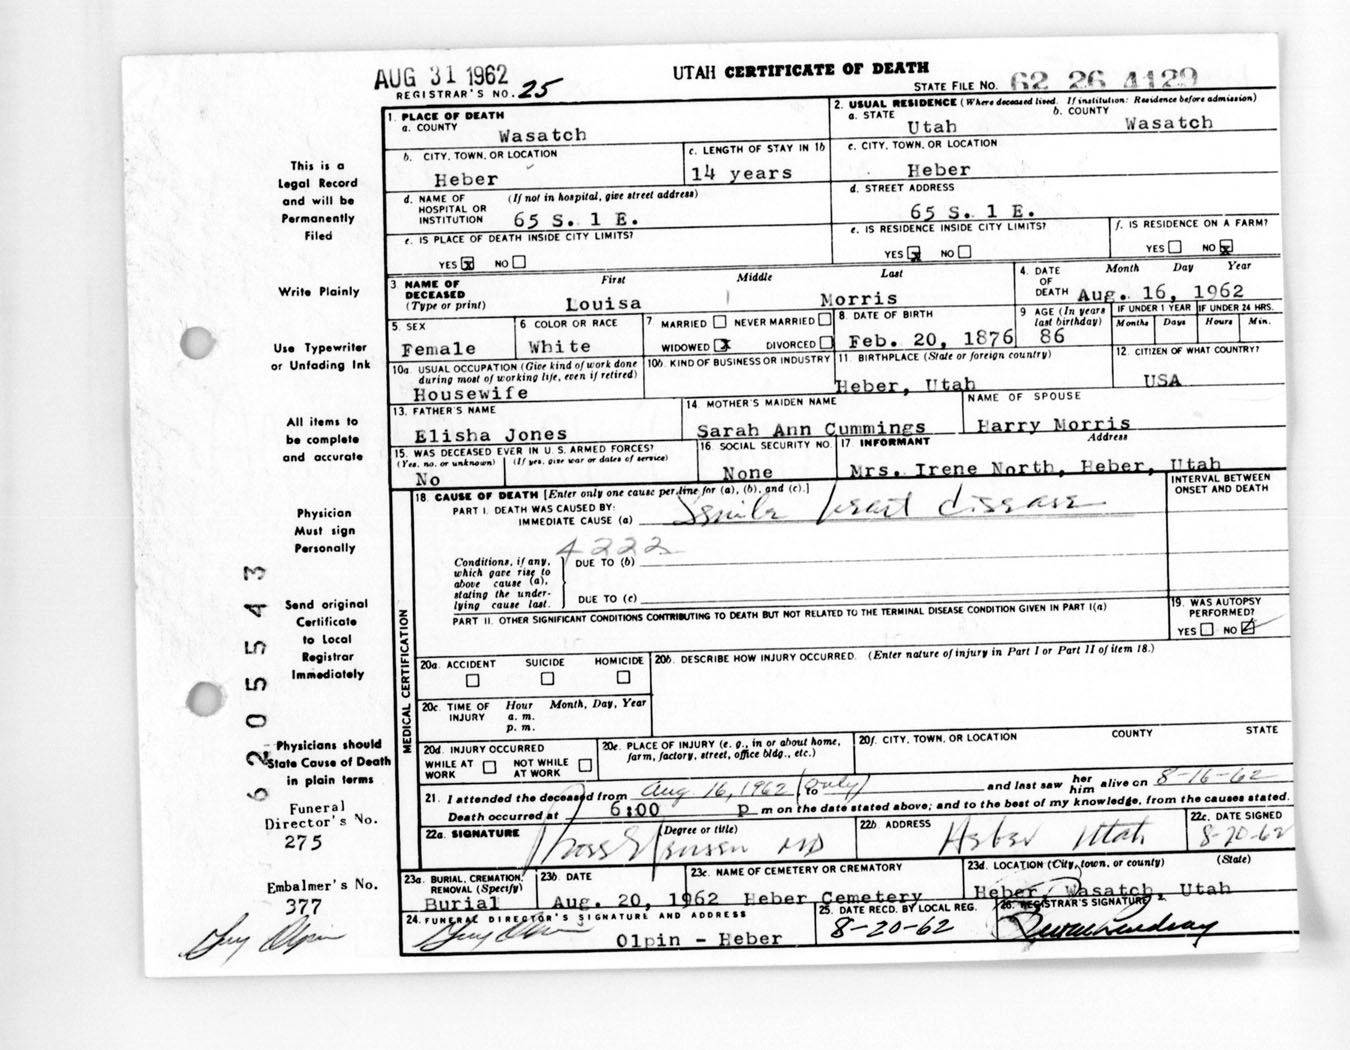 AUG 31 1962
UTAH CERTIFICATE OF DEATH
REGISTRAR'S NO. 25
STATE FILE NO. 62 26 4129
1. PLACE OF DEATH
a. COUNTY
Wasatch
2. USUAL RESIDENCE (Where deceased lived. If institution: Residence before admission)
a. STATE
Utah
b. COUNTY
Wasatch
b. CITY, TOWN, OR LOCATION
Heber
c. LENGTH OF STAY IN 1b
14 years
c. CITY, TOWN, OR LOCATION
Heber
d. NAME OF HOSPITAL OR INSTITUTION
(If not in hospital, give street address)
65 S. 1 E.
d. STREET ADDRESS
65 S. 1 E.
e. IS PLACE OF DEATH INSIDE CITY LIMITS?
YES x NO
e. IS RESIDENCE INSIDE CITY LIMITS?
YES x NO
f. IS RESIDENCE ON A FARM?
YES NO x
3 NAME OF DECEASED
(Type or print)
First Middle Last
Louisa Morris
4. DATE OF DEATH
Month Day Year
Aug. 16, 1962
5. SEX
Female
6 COLOR OR RACE
White
7 MARRIED NEVER MARRIED
WIDOWED x DIVORCED
8. DATE OF BIRTH
Feb. 20, 1876
9 AGE (In years last birthday)
86
IF UNDER 1 YEAR
Months Days
IF UNDER 24 HRS.
Hours Min.
10a. USUAL OCCUPATION (Give kind of work done during most of working life, even if retired)
Housewife
10b. KIND OF BUSINESS OR INDUSTRY
11. BIRTHPLACE (State or foreign country)
Heber, Utah
12. CITIZEN OF WHAT COUNTRY?
USA
13. FATHER'S NAME
Elisha Jones
14. MOTHER'S MAIDEN NAME
Sarah Ann Cummings
NAME OF SPOUSE
Harry Morris
15. WAS DECEASED EVER IN U.S. ARMED FORCES?
(Yes, no, or unknown) (If yes, give war or dates of service)
No
16 SOCIAL SECURITY NO.
None
17. INFORMANT Address
Mrs. Irene North, Heber, Utah
18. CAUSE OF DEATH [Enter only one cause per line for (a), (b), and (c).]
INTERVAL BETWEEN ONSET AND DEATH
PART I. DEATH WAS CAUSED BY:
IMMEDIATE CAUSE (a) Senile heart disease
4222
Conditions, if any, which gave rise to above cause (a), stating the underlying cause last.
DUE TO (b)
DUE TO (c)
PART II. OTHER SIGNIFICANT CONDITIONS CONTRIBUTING TO DEATH BUT NOT RELATED TO THE TERMINAL DISEASE CONDITION GIVEN IN PART I(a)
19. WAS AUTOPSY PERFORMED?
YES NO
MEDICAL CERTIFICATION
20a. ACCIDENT SUICIDE HOMICIDE
20b. DESCRIBE HOW INJURY OCCURRED. (Enter nature of injury in Part I or Part II of item 18.)
20c. TIME OF INJURY
Hour Month, Day, Year
a. m.
p. m.
20d. INJURY OCCURRED
WHILE AT WORK NOT WHILE AT WORK
20e. PLACE OF INJURY (e. g., in or about home, farm, factory, street, office bldg., etc.)
20f. CITY, TOWN, OR LOCATION COUNTY STATE
21. I attended the deceased from Aug 16, 1962 to (only) and last saw her him alive on 8-16-62
Death occurred at 6:00 p m on the date stated above; and to the best of my knowledge, from the causes stated.
22a. SIGNATURE (Degree or title)
MD
22b. ADDRESS
Heber Utah
22c. DATE SIGNED
8-20-62
23a. BURIAL, CREMATION, REMOVAL (Specify)
Burial
23b. DATE
Aug. 20, 1962
23c. NAME OF CEMETERY OR CREMATORY
Heber Cemetery
23d. LOCATION (City, town, or county) (State)
Heber, Wasatch, Utah
24. FUNERAL DIRECTOR'S SIGNATURE AND ADDRESS
Guy Olpin
Olpin - Heber
25. DATE RECD. BY LOCAL REG.
8-20-62
26. REGISTRAR'S SIGNATURE
This is a
Legal Record
and will be
Permanently
Filed
Write Plainly
Use Typewriter
or Unfading Ink
All items to
be complete
and accurate
Physician
Must sign
Personally
Send original
Certificate
to Local
Registrar
Immediately
Physicians should
State Cause of Death
in plain terms
Funeral
Director's No.
275
Embalmer's No.
377
Guy Olpin
6205543